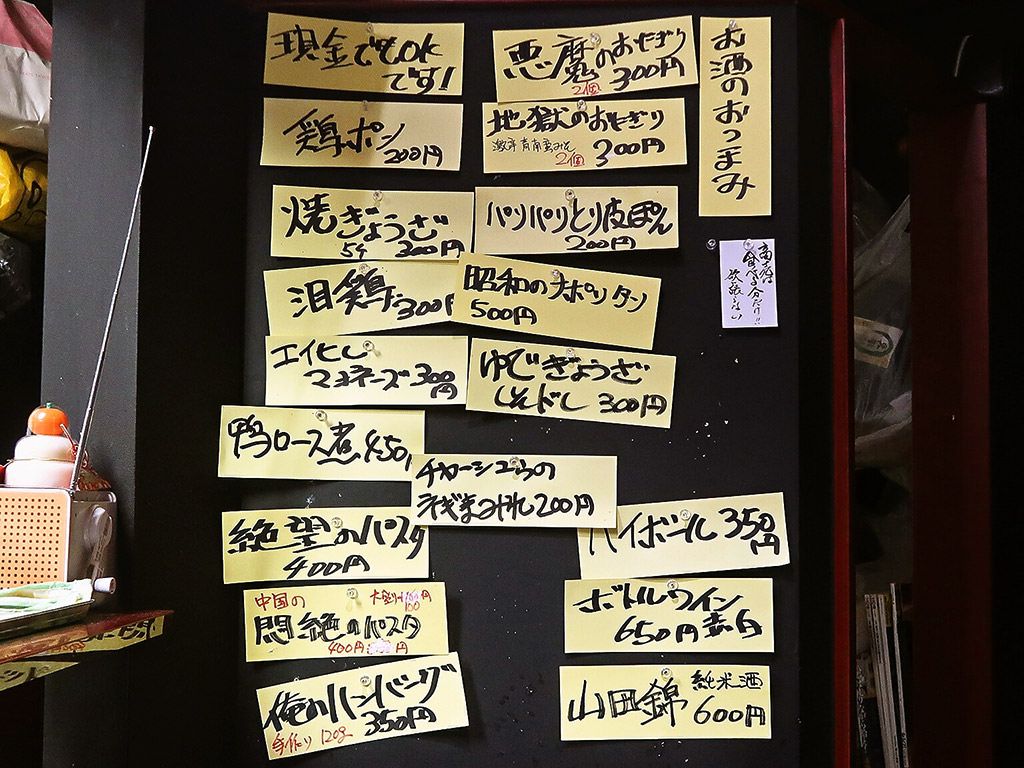 お酒のおつまみ
現金でもOK
です!
悪魔のおにぎり
2個 300円
鶏ポン
200円
地獄のおにぎり
激辛青南蛮みそ
2個 300円
焼ぎょうざ
5ケ 300円
パリパリとり皮ぽん
200円
泪鶏
300円
昭和のナポリタン
500円
エイヒレ
マヨネーズ 300円
ゆでぎょうざ
しそドレ 300円
鴨ロース煮 450
チャーシューの
ネギまみれ 200円
絶望のパスタ
400円
ハイボール 350円
中国の
悶絶のパスタ
400円
ボトルワイン
650円 赤白
俺のハンバーグ
手作り 120g 350円
山田錦 純米酒
600円